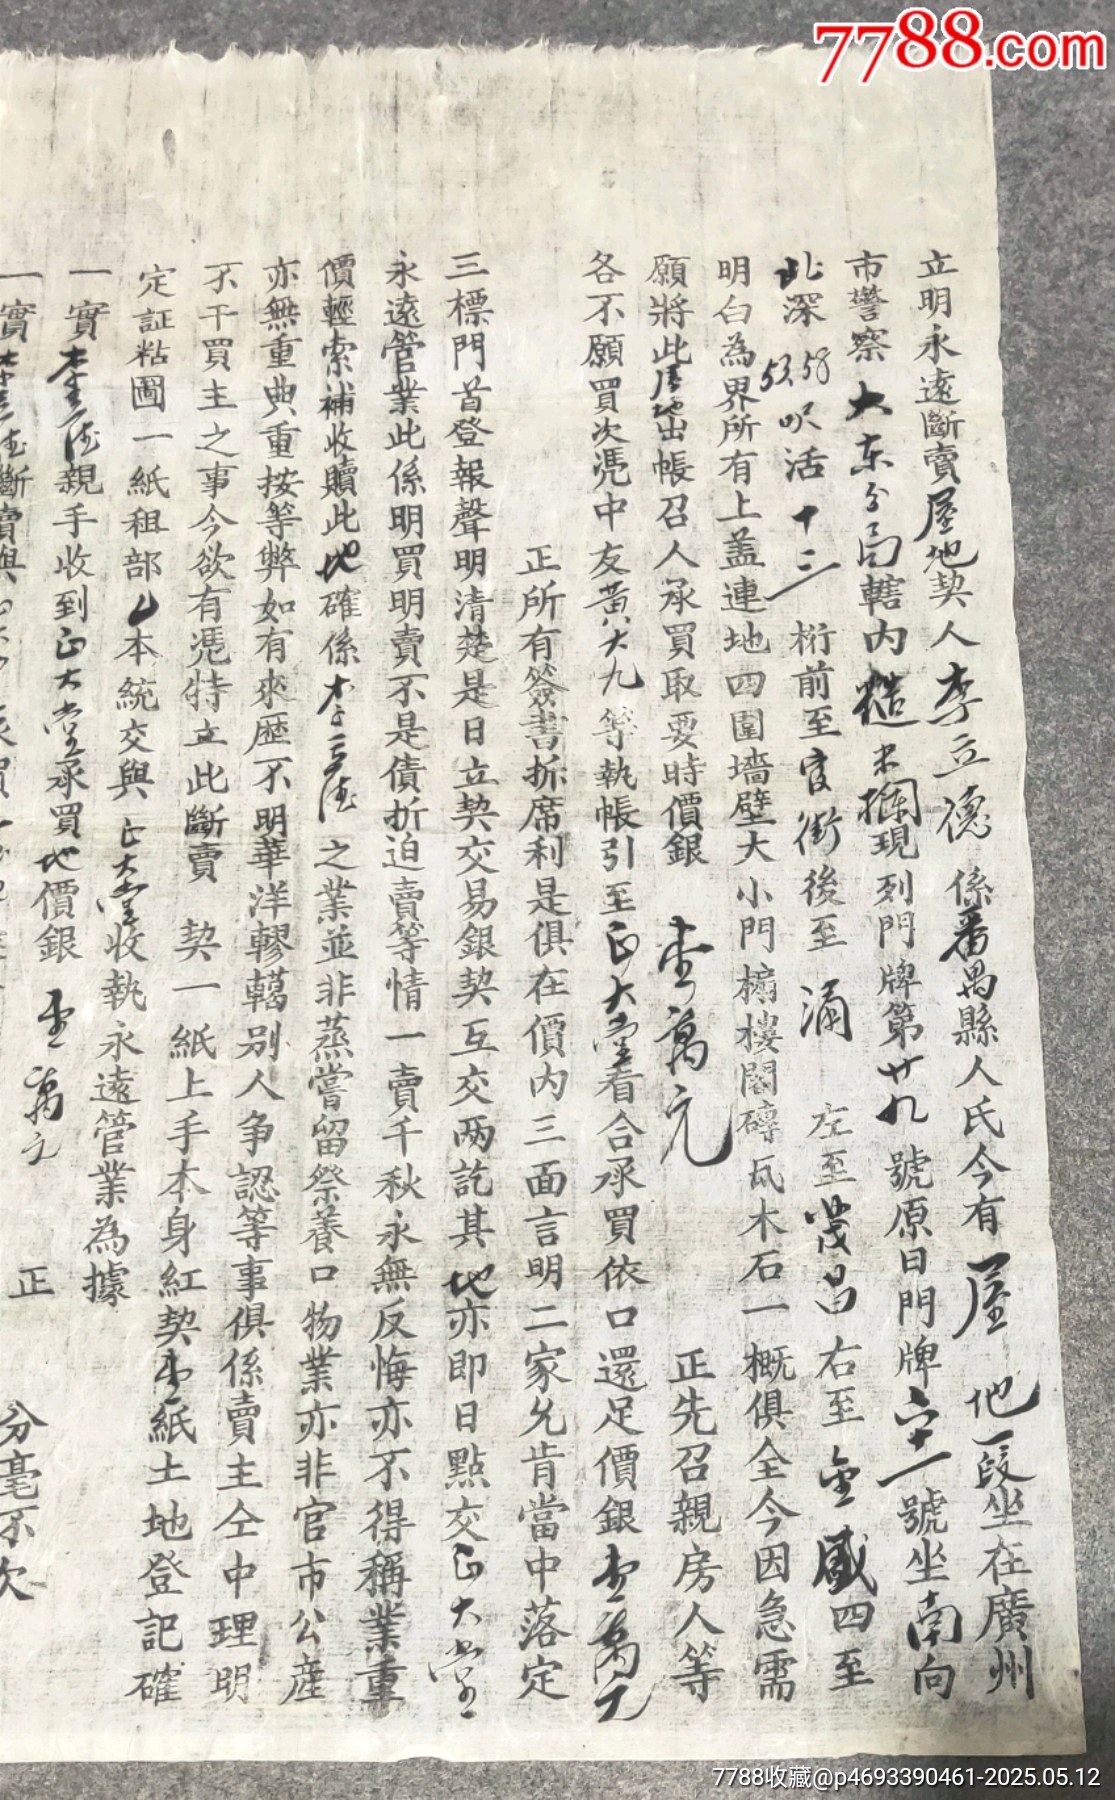 7788.com
立明永遠斷賣屋地契人李立德係番禺縣人氏今有屋地一段坐在廣州
市警察大东分局轄内糙米欄現列門牌第廿九號原日門牌號坐南向
北深53.58呎活十三桁前至官街後至涌左至茂昌右至金盛四至
明白為界所有上盖連地四圍墻壁大小門櫊樓閣磚瓦木石一概俱全今因急需
願將此屋地出帳召人承買取要時價銀壹萬元正先召親房人等
各不願買次凴中友黄大九等執帳引至正大堂看合承買依口還足價銀壹萬元
正所有簽書折席利是俱在價内三面言明二家允肯當中落定
三標門首登報聲明清楚是日立契交易銀契互交两訖其地亦即日點交正大堂
永遠管業此係明買明賣不是債折迫賣等情一賣千秋永無反悔亦不得稱業重
價輕索補收贖此地確係李立德之業並非蒸嘗留祭養口物業亦非官市公産
亦無重典重按等弊如有來歴不明華洋轇轕别人争認等事俱係賣主仝中理明
不干買主之事今欲有凴特立此斷賣契一紙上手本身紅契壹紙土地登記確
定証粘圖一紙租部乙本統交與正大堂收執永遠管業為據
一實李立德親手收到正大堂承買地價銀壹萬元正
一實李立德斷賣與分毫不欠
7788收藏@p4693390461-2025.05.12